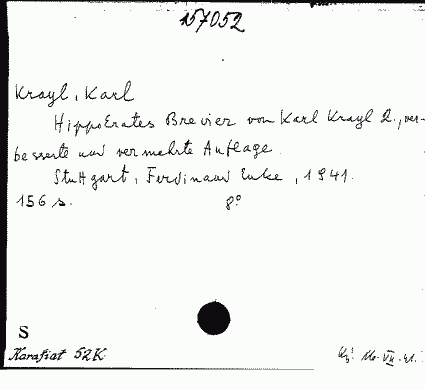 157052
Krayl, Karl
Hippokrates Brevier von Karl Krayl 2., ver-
besserte und vermehrte Auflage.
Stuttgart, Ferdinand Enke, 1941.
156 s. 8°
S
Karafiat 52K 16. VII. 41.